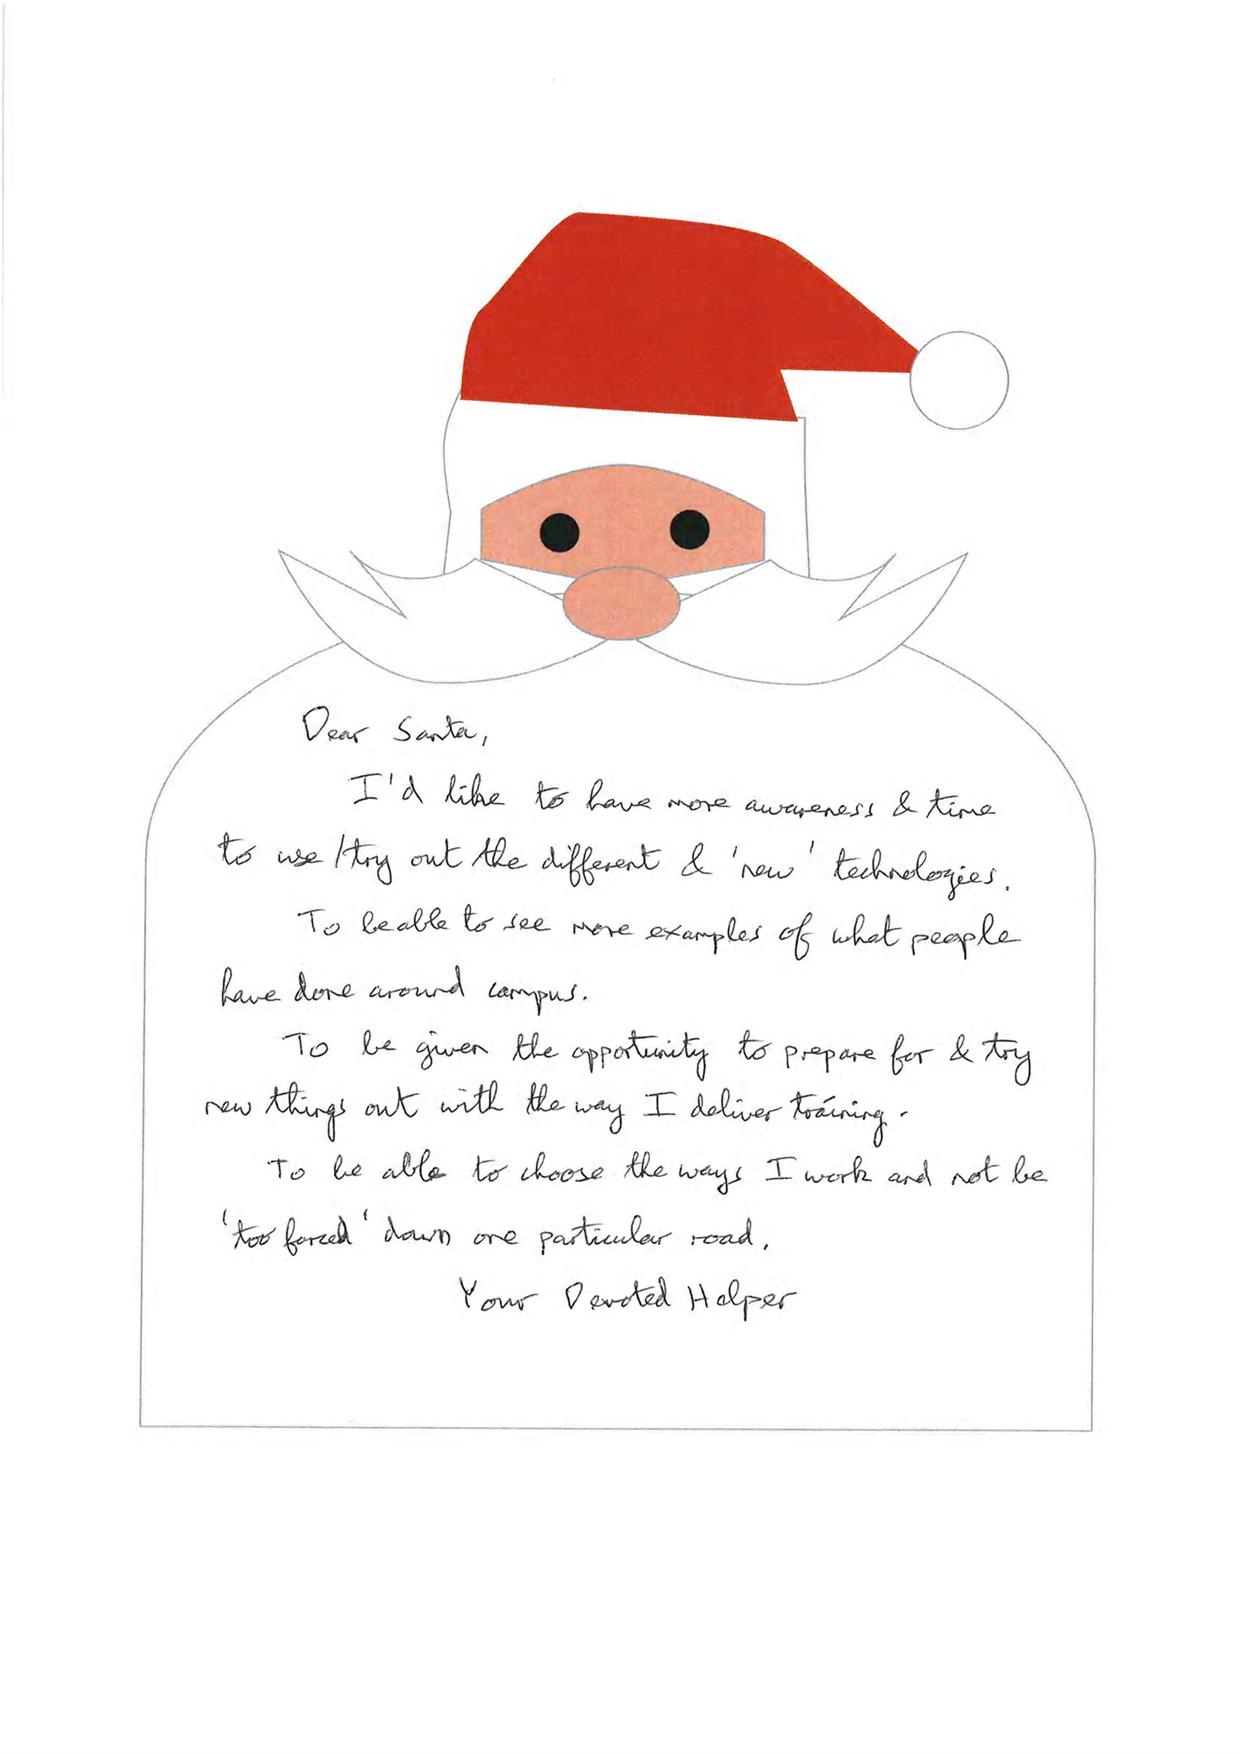 Dear Santa,
I'd like to have more awareness & time
to use/try out the different & 'new' technologies.
To be able to see more examples of what people
have done around campus.
To be given the opportunity to prepare for & try
new things out with the way I deliver training.
To be able to choose the ways I work and not be
'too forced' down one particular road.
Your Devoted Helper